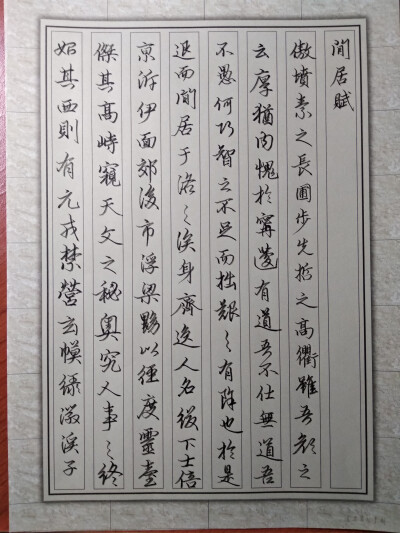 閒居賦
傲墳素之長圃步先哲之高衢雖吾顏之
云厚猶内愧於甯蘧有道吾不仕無道吾
不愚何巧智之不足而拙艱之有餘也於是
退而閒居于洛之涘身齊逸人名綴下士倍
京泝伊面郊後市浮梁黝以徑度靈臺
傑其高峙窺天文之秘奧究人事之終
始其西則有元戎禁營玄幙綠徽溪子